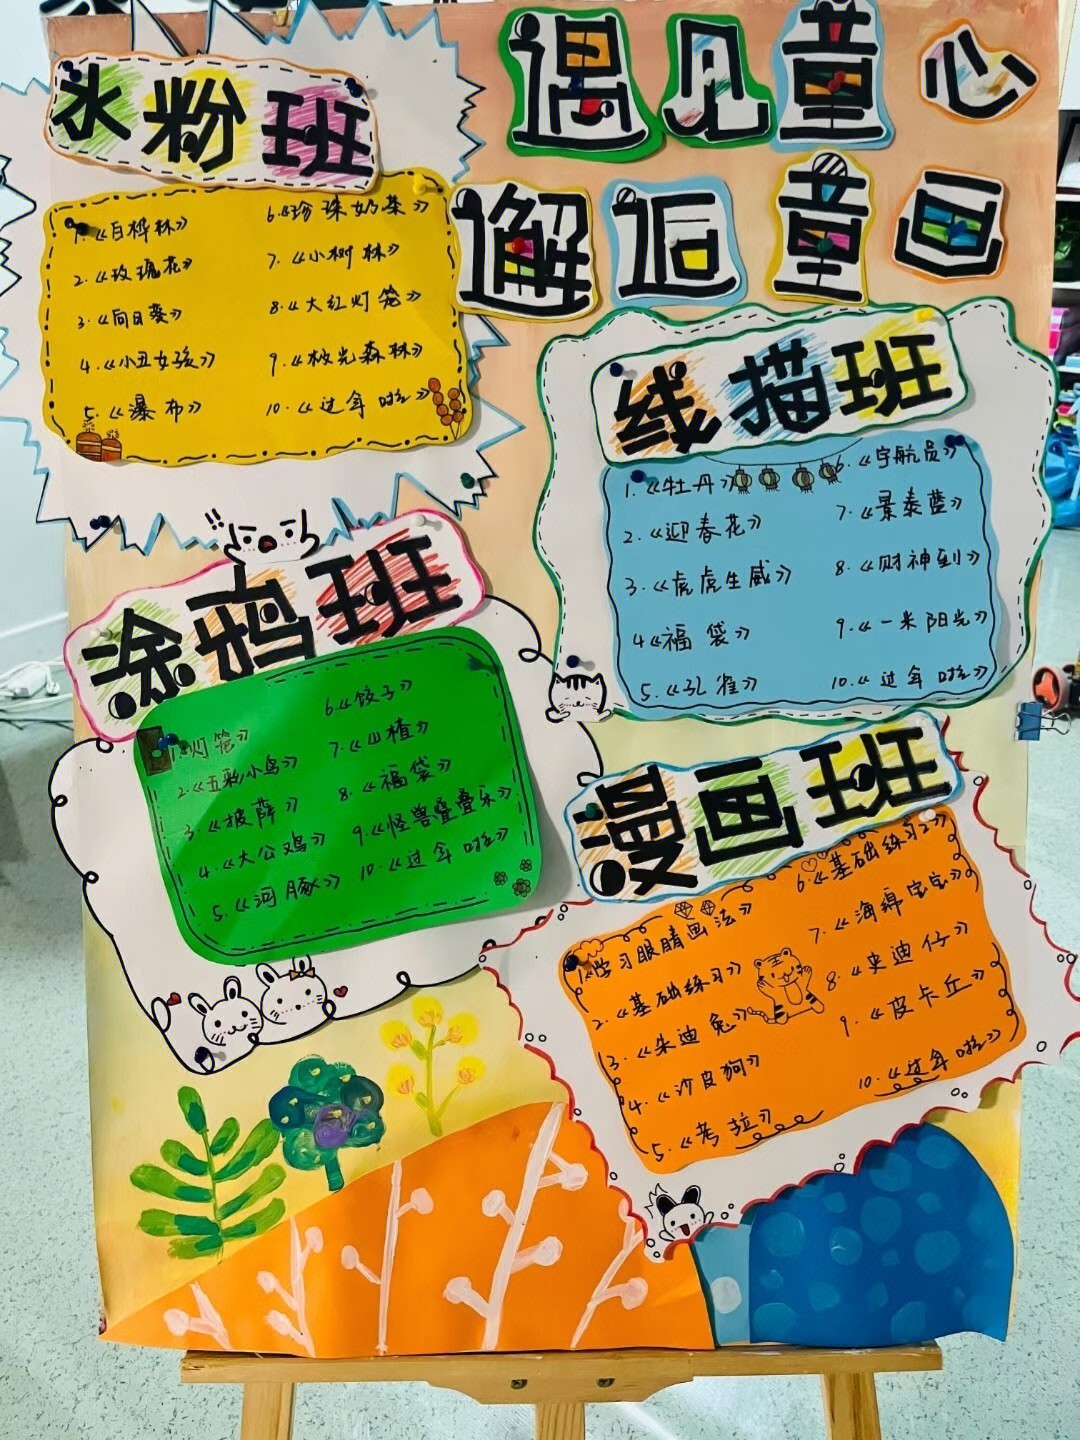 遇见童心
邂逅童画
水粉班
1.《白桦林》
2.《玫瑰花》
3.《向日葵》
4.《小丑女孩》
5.《瀑布》
6.《珍珠奶茶》
7.《小树林》
8.《大红灯笼》
9.《极光森林》
10.《过年啦》
线描班
1.《牡丹》
2.《迎春花》
3.《虎虎生威》
4《福袋》
5.《孔雀》
6.《宇航员》
7.《景泰蓝》
8.《财神到》
9.《一米阳光》
10.《过年啦》
涂鸦班
1.《灯笼》
2.《五彩小鸟》
3.《披萨》
4.《大公鸡》
5.《河豚》
6.《饺子》
7.《山楂》
8.《福袋》
9.《怪兽叠叠乐》
10.《过年啦》
漫画班
1《学习眼睛画法》
2.《基础练习》
3.《朱迪兔》
4.《沙皮狗》
5.《考拉》
6.《基础练习2》
7.《海绵宝宝》
8.《史迪仔》
9.《皮卡丘》
10.《过年啦》